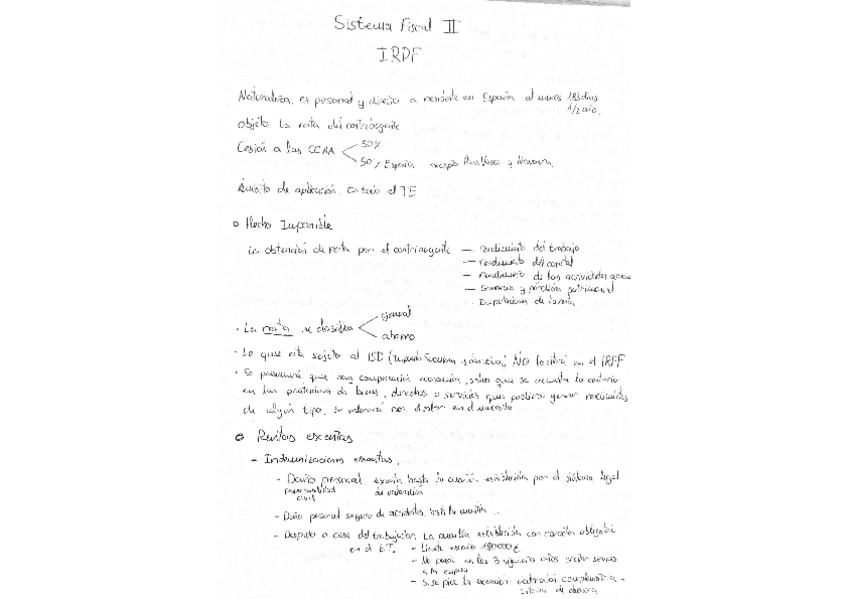 Sistema Fiscal II
IRPF
Naturaleza, es personal y directo a residente en España al menos 183 días
1/2 año.
Objeto La renta del contribuyente
Cesión a las CCAA 50%
50% España, excepto País Vasco y Navarra.
Ámbito de aplicación. En todo el TE
Hecho Imponible
la obtención de renta por el contribuyente — rendimiento del trabajo
— rendimiento del capital
— rendimiento de las actividades
— Ganancia y pérdida patrimonial
Imputaciones de renta
· La renta se clasifica general
ahorro
· Lo que esta sujeto al ISD (Impuesto Sucesiones) NO en el IRPF
· Se presumirá que salvo que se lo contrario
en las prestaciones de bienes, derechos o servicios que pudieran generar rendimientos
de algún tipo, se valorará por en el mercado
Rentas exentas
- Indemnizaciones exentas.
- Daño personal, exenta hasta la cuantía por el sistema legal
responsabilidad de valoración
civil
- Daño personal seguro de accidentes, hasta la cuantía ...
- Despido o cese del trabajador. La cuantía establecida con carácter obligatorio
en el ET. - Límite exento 180000€
- No puede en los 3 siguientes años
a la empresa
- Si se pierde la exención: declaración complementaria +
intereses de demora